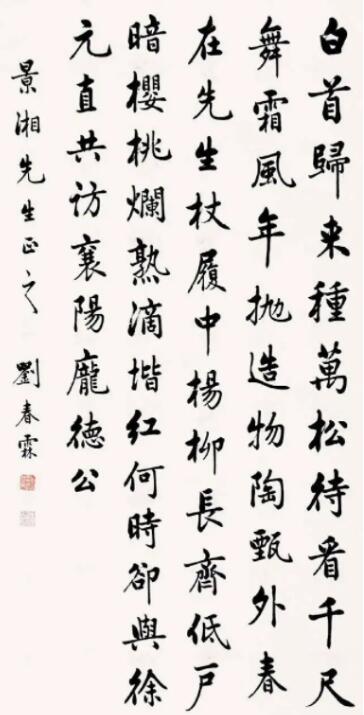 白首歸来種萬松待看千尺
舞霜風年抛造物陶甄外春
在先生杖屨中楊柳長齊低戶
暗櫻桃爛熟滴堦紅何時卻與徐
元直共访襄陽龐德公
景湘先生正之 劉春霖